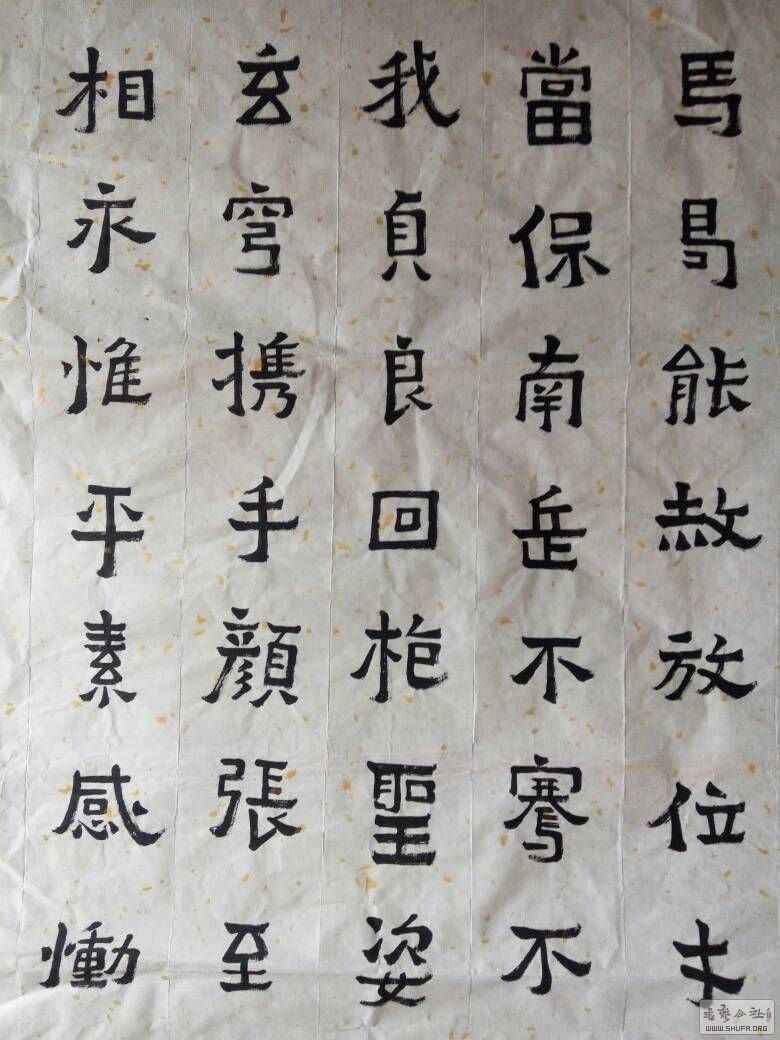 馬能赦放位
當保南岳不騫不
我貞良回聖姿
玄穹携手顏張至
相永惟平素感慟
書藝公社
WWW.SHUFA.ORG